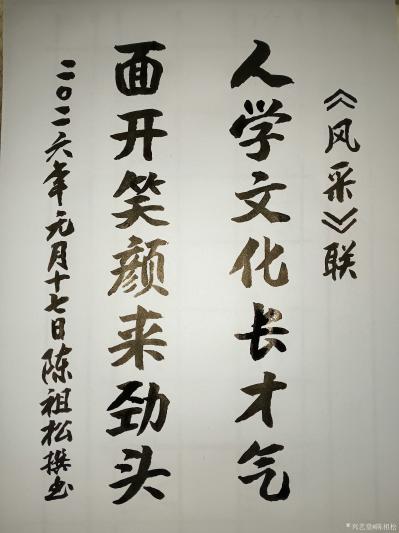 《风采》联
人学文化长才气
面开笑颜来劲头
二〇二六年元月十七日陈祖松撰书